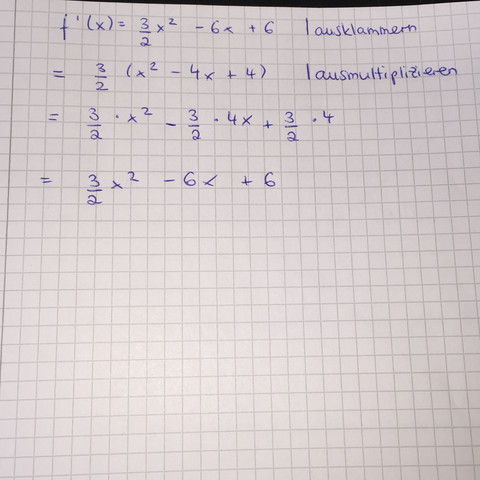 f'(x) = 3/2 x² - 6x + 6 | ausklammern
= 3/2 (x² - 4x + 4) | ausmultiplizieren
= 3/2 · x² - 3/2 · 4x + 3/2 · 4
= 3/2 x² - 6x + 6